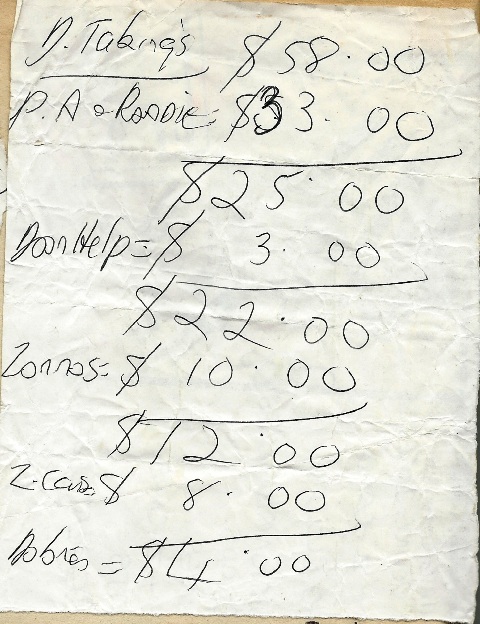 D. Taking's $58.00
P.A & Roadie = $33.00
$25.00
Door Help = $ 3.00
$22.00
Zorros = $ 10.00
$12.00
Z-Cars $ 8.00
= $4.00